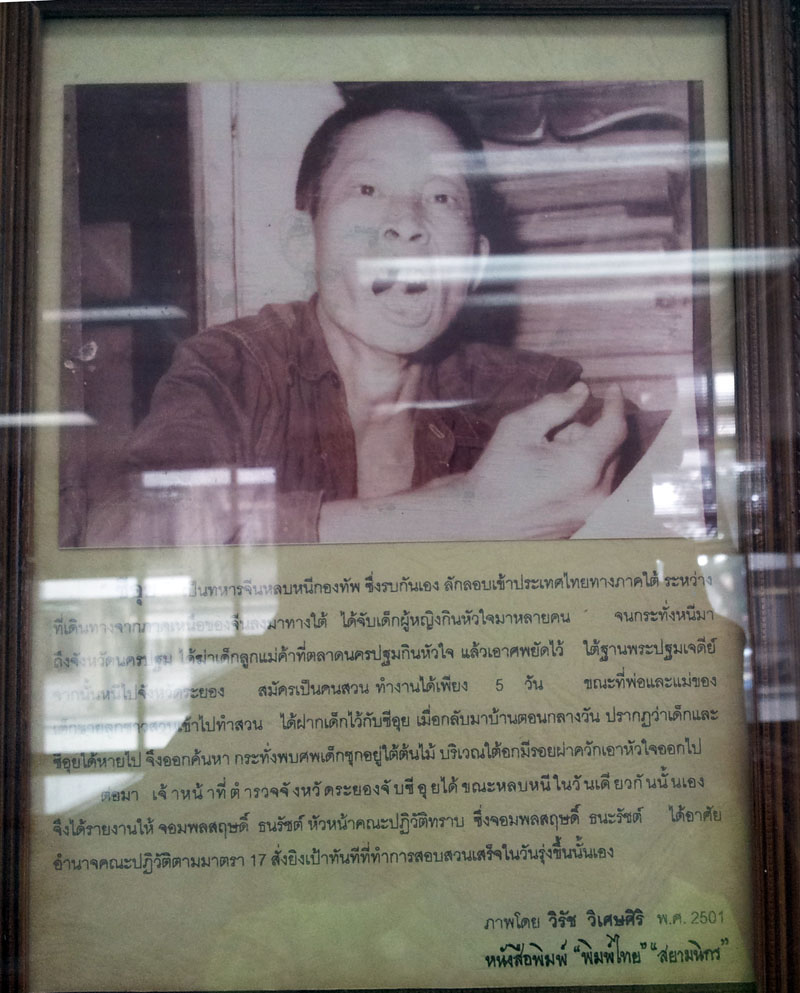 ซีอุย เป็นทหารจีนหลบหนีกองทัพ ซึ่งรบกันเอง ลักลอบเข้าประเทศไทยทางภาคใต้ ระหว่าง
ที่เดินทางจากภาคเหนือของจีนลงมาทางใต้ ได้จับเด็กผู้หญิงกินหัวใจมาหลายคน จนกระทั่งหนีมา
ถึงจังหวัดนครปฐม ได้ฆ่าเด็กลูกแม่ค้าที่ตลาดนครปฐมกินหัวใจ แล้วเอาศพยัดไว้ ใต้ฐานพระปฐมเจดีย์
จากนั้นหนีไปจังหวัดระยอง สมัครเป็นคนสวน ทำงานได้เพียง 5 วัน ขณะที่พ่อและแม่ของ
เข้าไปทำสวน ได้ฝากเด็กไว้กับซีอุย เมื่อกลับมาบ้านตอนกลางวัน ปรากฏว่าเด็กและ
ซีอุยได้หายไป จึงออกค้นหา กระทั่งพบศพเด็กซุกอยู่ใต้ต้นไม้ บริเวณใต้อกมีรอยผ่าควักเอาหัวใจออกไป
ต่อมา เจ้าหน้าที่ตำรวจจังหวัดระยองจับซีอุยได้ขณะหลบหนีในวันเดียวกันนั้นเอง
จึงได้รายงานให้ จอมพลสฤษดิ์ ธนรัชต์ หัวหน้าคณะปฏิวัติทราบ ซึ่งจอมพลสฤษดิ์ ธนะรัชต์ ได้อาศัย
อำนาจคณะปฏิวัติตามมาตรา 17 สั่งยิงเป้าทันทีที่ทำการสอบสวนเสร็จในวันรุ่งขึ้นนั้นเอง
ภาพโดย วิรัช วิเศษศิริ พ.ศ. 2501
หนังสือพิมพ์ "พิมพ์ไทย" "สยามนิกร"